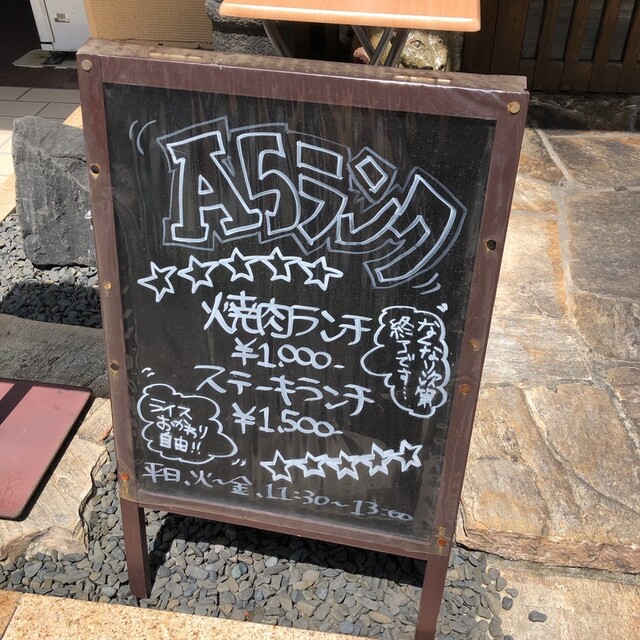 A5ランク
焼肉ランチ
¥1,000-
なくなり次第
終了です…
ステーキランチ
¥1,500-
ライス
おかわり
自由!!
平日、火〜金、11:30〜13:00